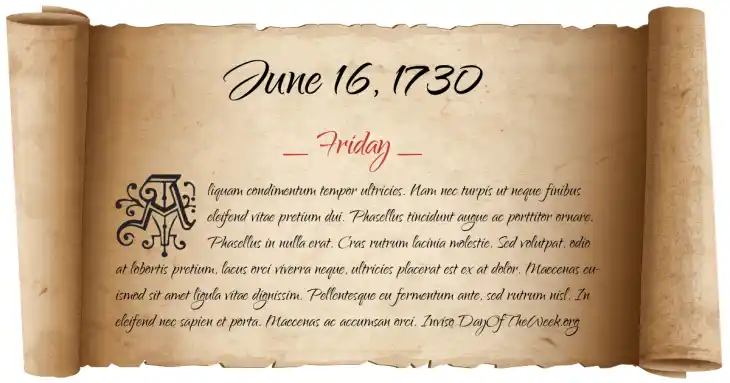 June 16, 1730
_ Friday _
Aliquam condimentum tempor ultricies. Nam nec turpis ut neque finibus
eleifend vitae pretium dui. Phasellus tincidunt augue ac porttitor ornare.
Phasellus in nulla erat. Cras rutrum lacinia molestie. Sed volutpat, odio
at lobortis pretium, lacus orci viverra neque, ultricies placerat est ex at dolor. Maecenas eu-
ismod sit amet ligula vitae dignissim. Pellentesque eu fermentum ante, sed rutrum nisl. In
eleifend nec sapien et porta. Maecenas ac accumsan orci. Inviso DayOfTheWeek.org